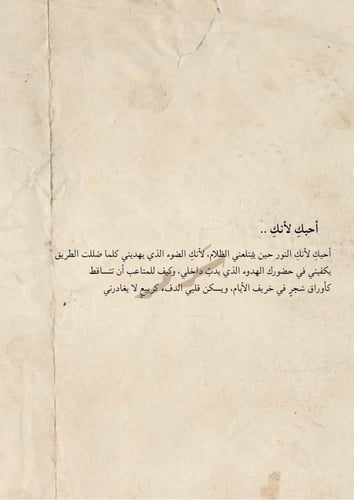 أحبكِ لأنكِ ..
أحبكِ لأنكِ النور حين يبتلعني الظلام، لأنكِ الضوء الذي يهديني كلما ضللت الطريق
يكفيني في حضورك الهدوء الذي يدبّ داخلي، وكيف للمتاعب أن تتساقط
كأوراق شجرٍ في خريف الأيام، ويسكن قلبي الدفء كربيعٍ لا يغادرني